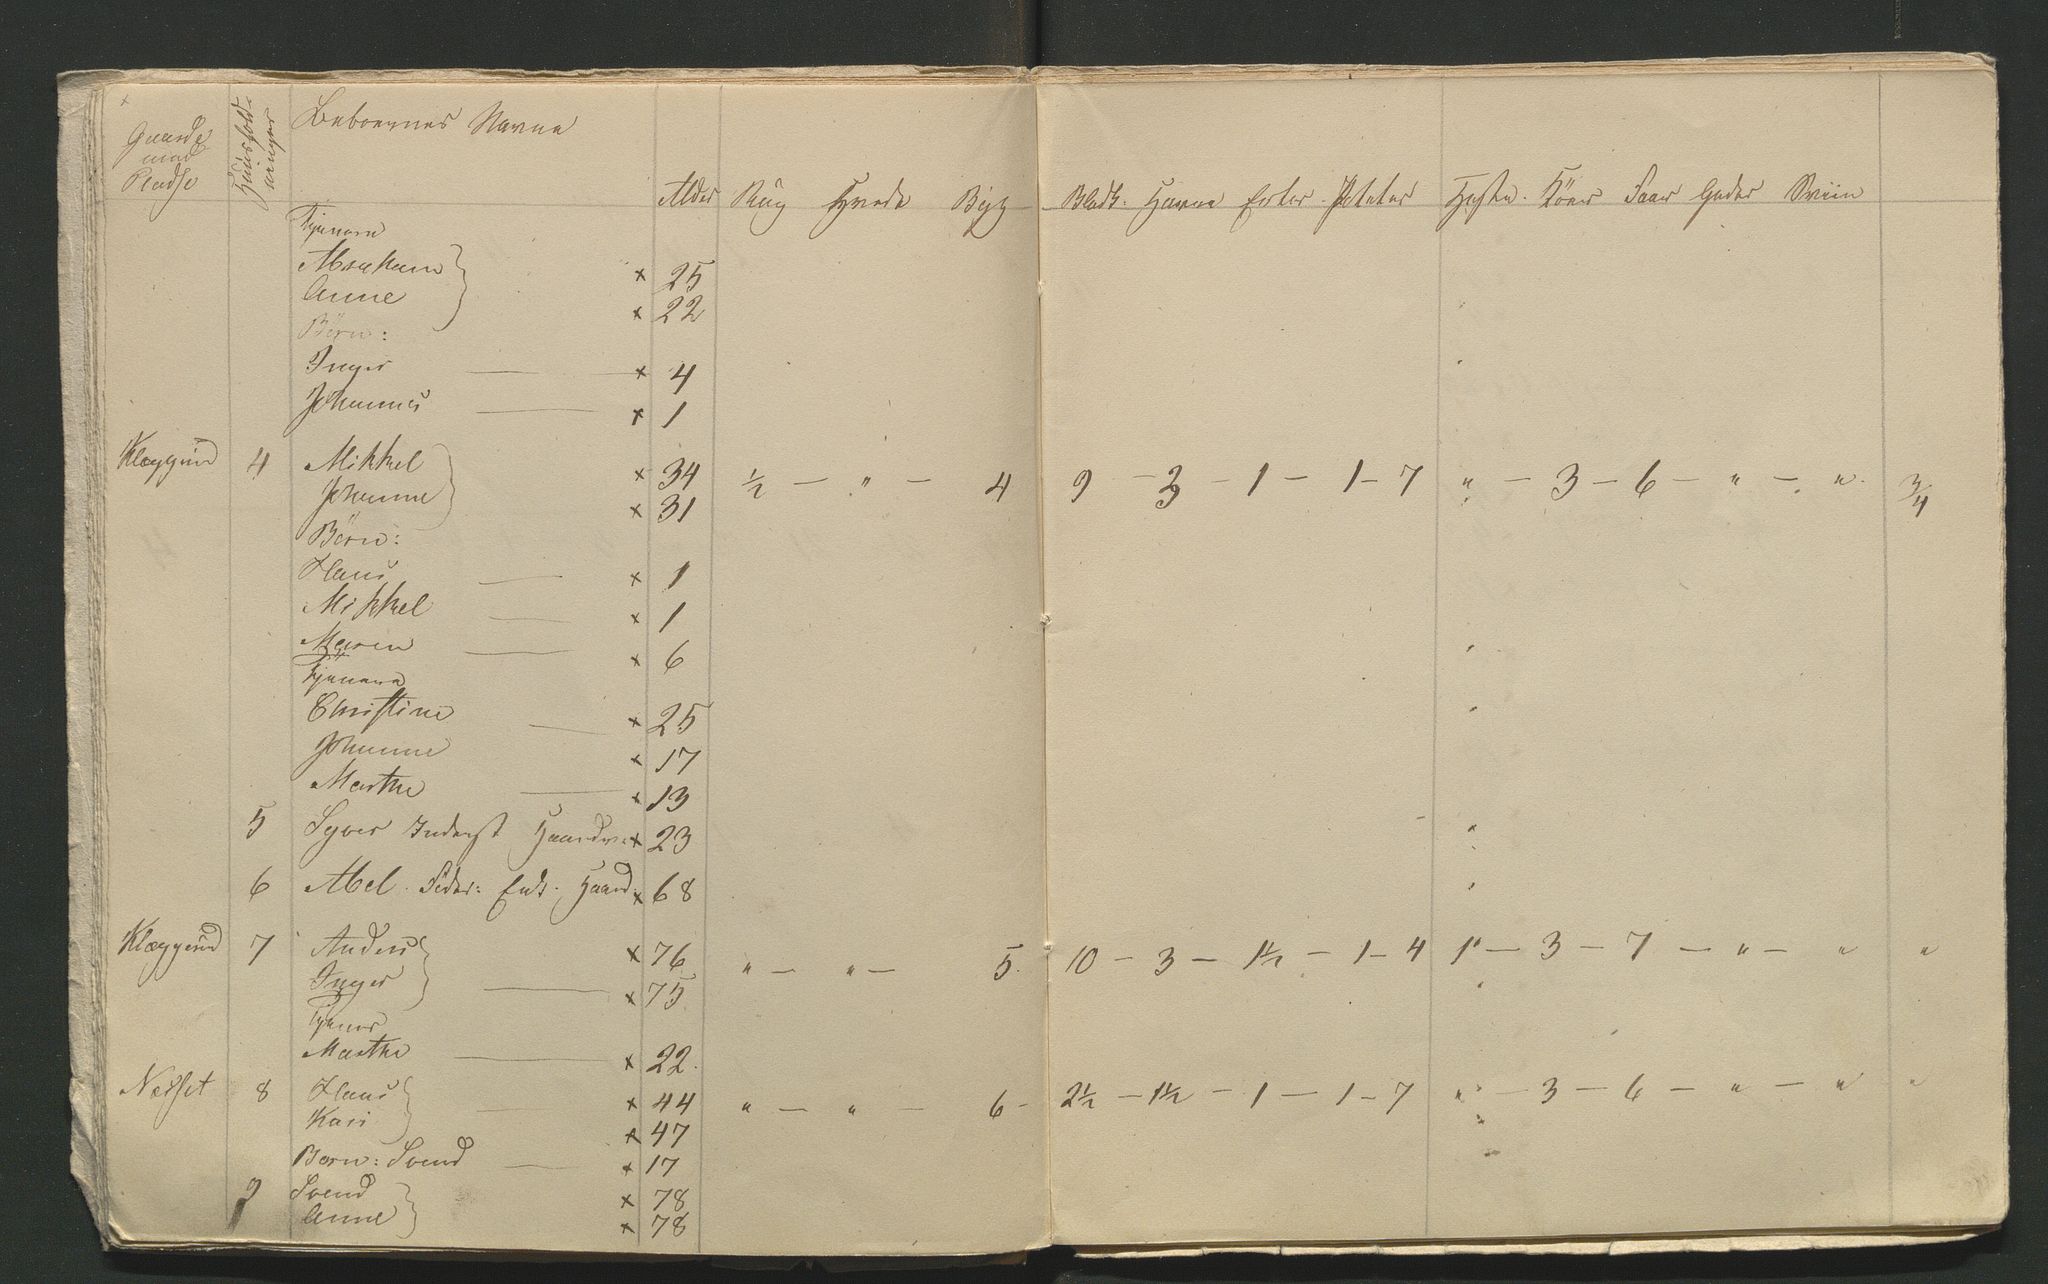 Gaarde
med
Pladse
Huusholdninger
Beboernes Navne
Alder Rug Hvede Byg Bladk. Havre Erter Poteter Heste Köer Faar Geder Sviin
Tjenere
Abraham × 25
Anne × 22
Börn:
Inger — × 4
Johannes — × 1
Klæggerud 4 Mikkel × 34 ½ — " — 4 9 — 3 — 1 — 1 — 7 " — 3 — 6 — " — " ¾
Johanne × 31
Börn:
Hans — × 1
Mikkel — × 1
Maren — × 6
Tjenere
Christine — × 25
Johanne × 17
Marthe — × 13
5 Syver Inderst Haandv: × 23
6 Abel. Föder: Enk. Haand. × 68
Klæggerud 7 Anders × 76 " — " — 5 10 — 3 — 1½ — 1 — 4 1 — 3 — 7 — " — " "
Inger — × 75
Tjener
Marthe — × 22
Næsset 8 Hans × 44 " — " — 6 — 2½ — 1½ — 1 — 1 — 7 " — 3 — 6 — " — " "
Kari × 47
Born: Svend — × 17
9 Svend × 78
Anne × 78